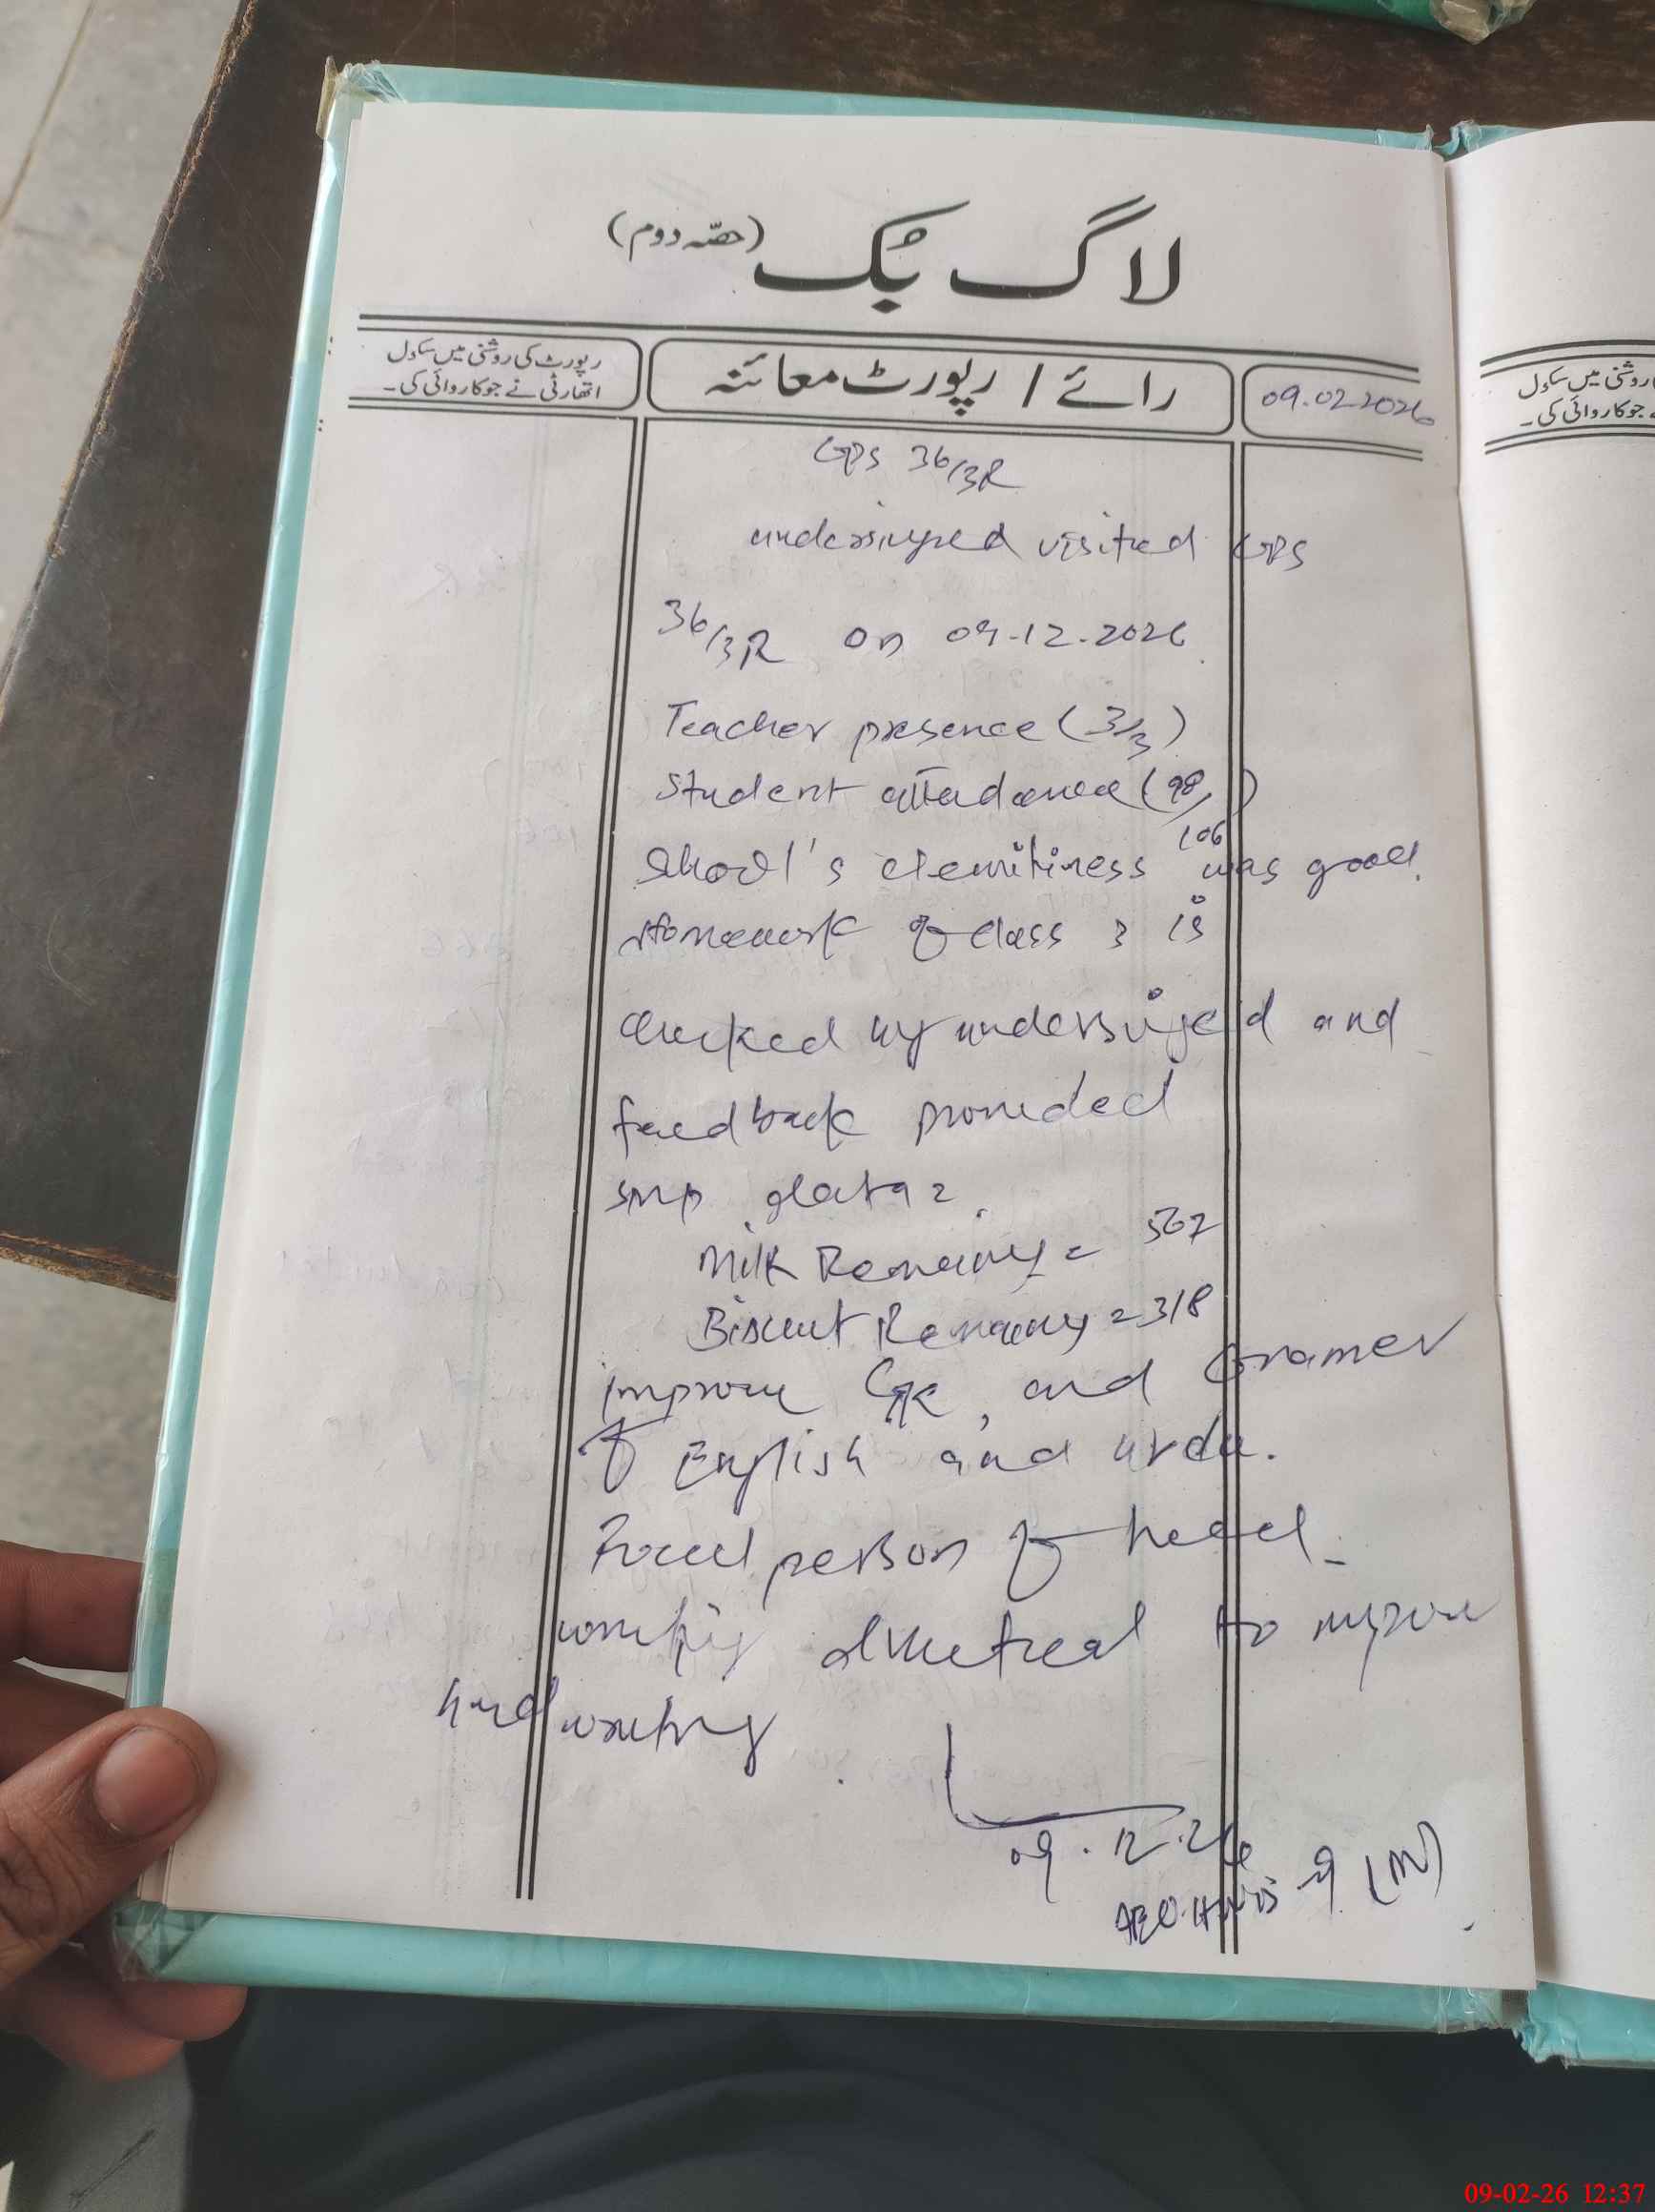 لاگ بُک (حصّہ دوم)
رپورٹ کی روشنی میں سکول
اتھارٹی نے جو کاروائی کی۔
رائے / رپورٹ معائنہ
09.02.2026
GPS 36/3R
undersigned visited GPS
36/3R on 09-12-2026
Teacher presence (3/3)
Student attendance (98/106)
School's cleanliness was good.
Homework of class 3 is
checked by undersigned and
feedback provided
SMP data =
Milk Remaining = 567
Biscuit Remaining = 318
improve GK, and Gramer
of English and urdu.
Focal person of
to improve
hard working
09.12.26
AEO (M)
روشنی میں سکول
جو کاروائی کی۔
09-02-26 12:37